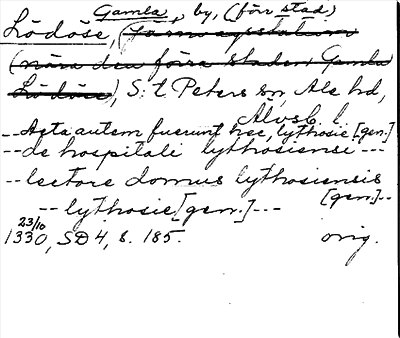 Gamla, by, (förr stad)
Lödöse, (
(nära den förra staden Gamla
Lödöse), S:t Peters sn, Ale hd,
Älvsb. l.
-- Acta autem fuerunt hec, lythosie [gen.]
-- de hospitali lythosiensi ---
-- lectore domus lythosiensis [gen.]--
-- lythosie [gen.] ---
23/10
1330, SD 4, s. 185. orig.